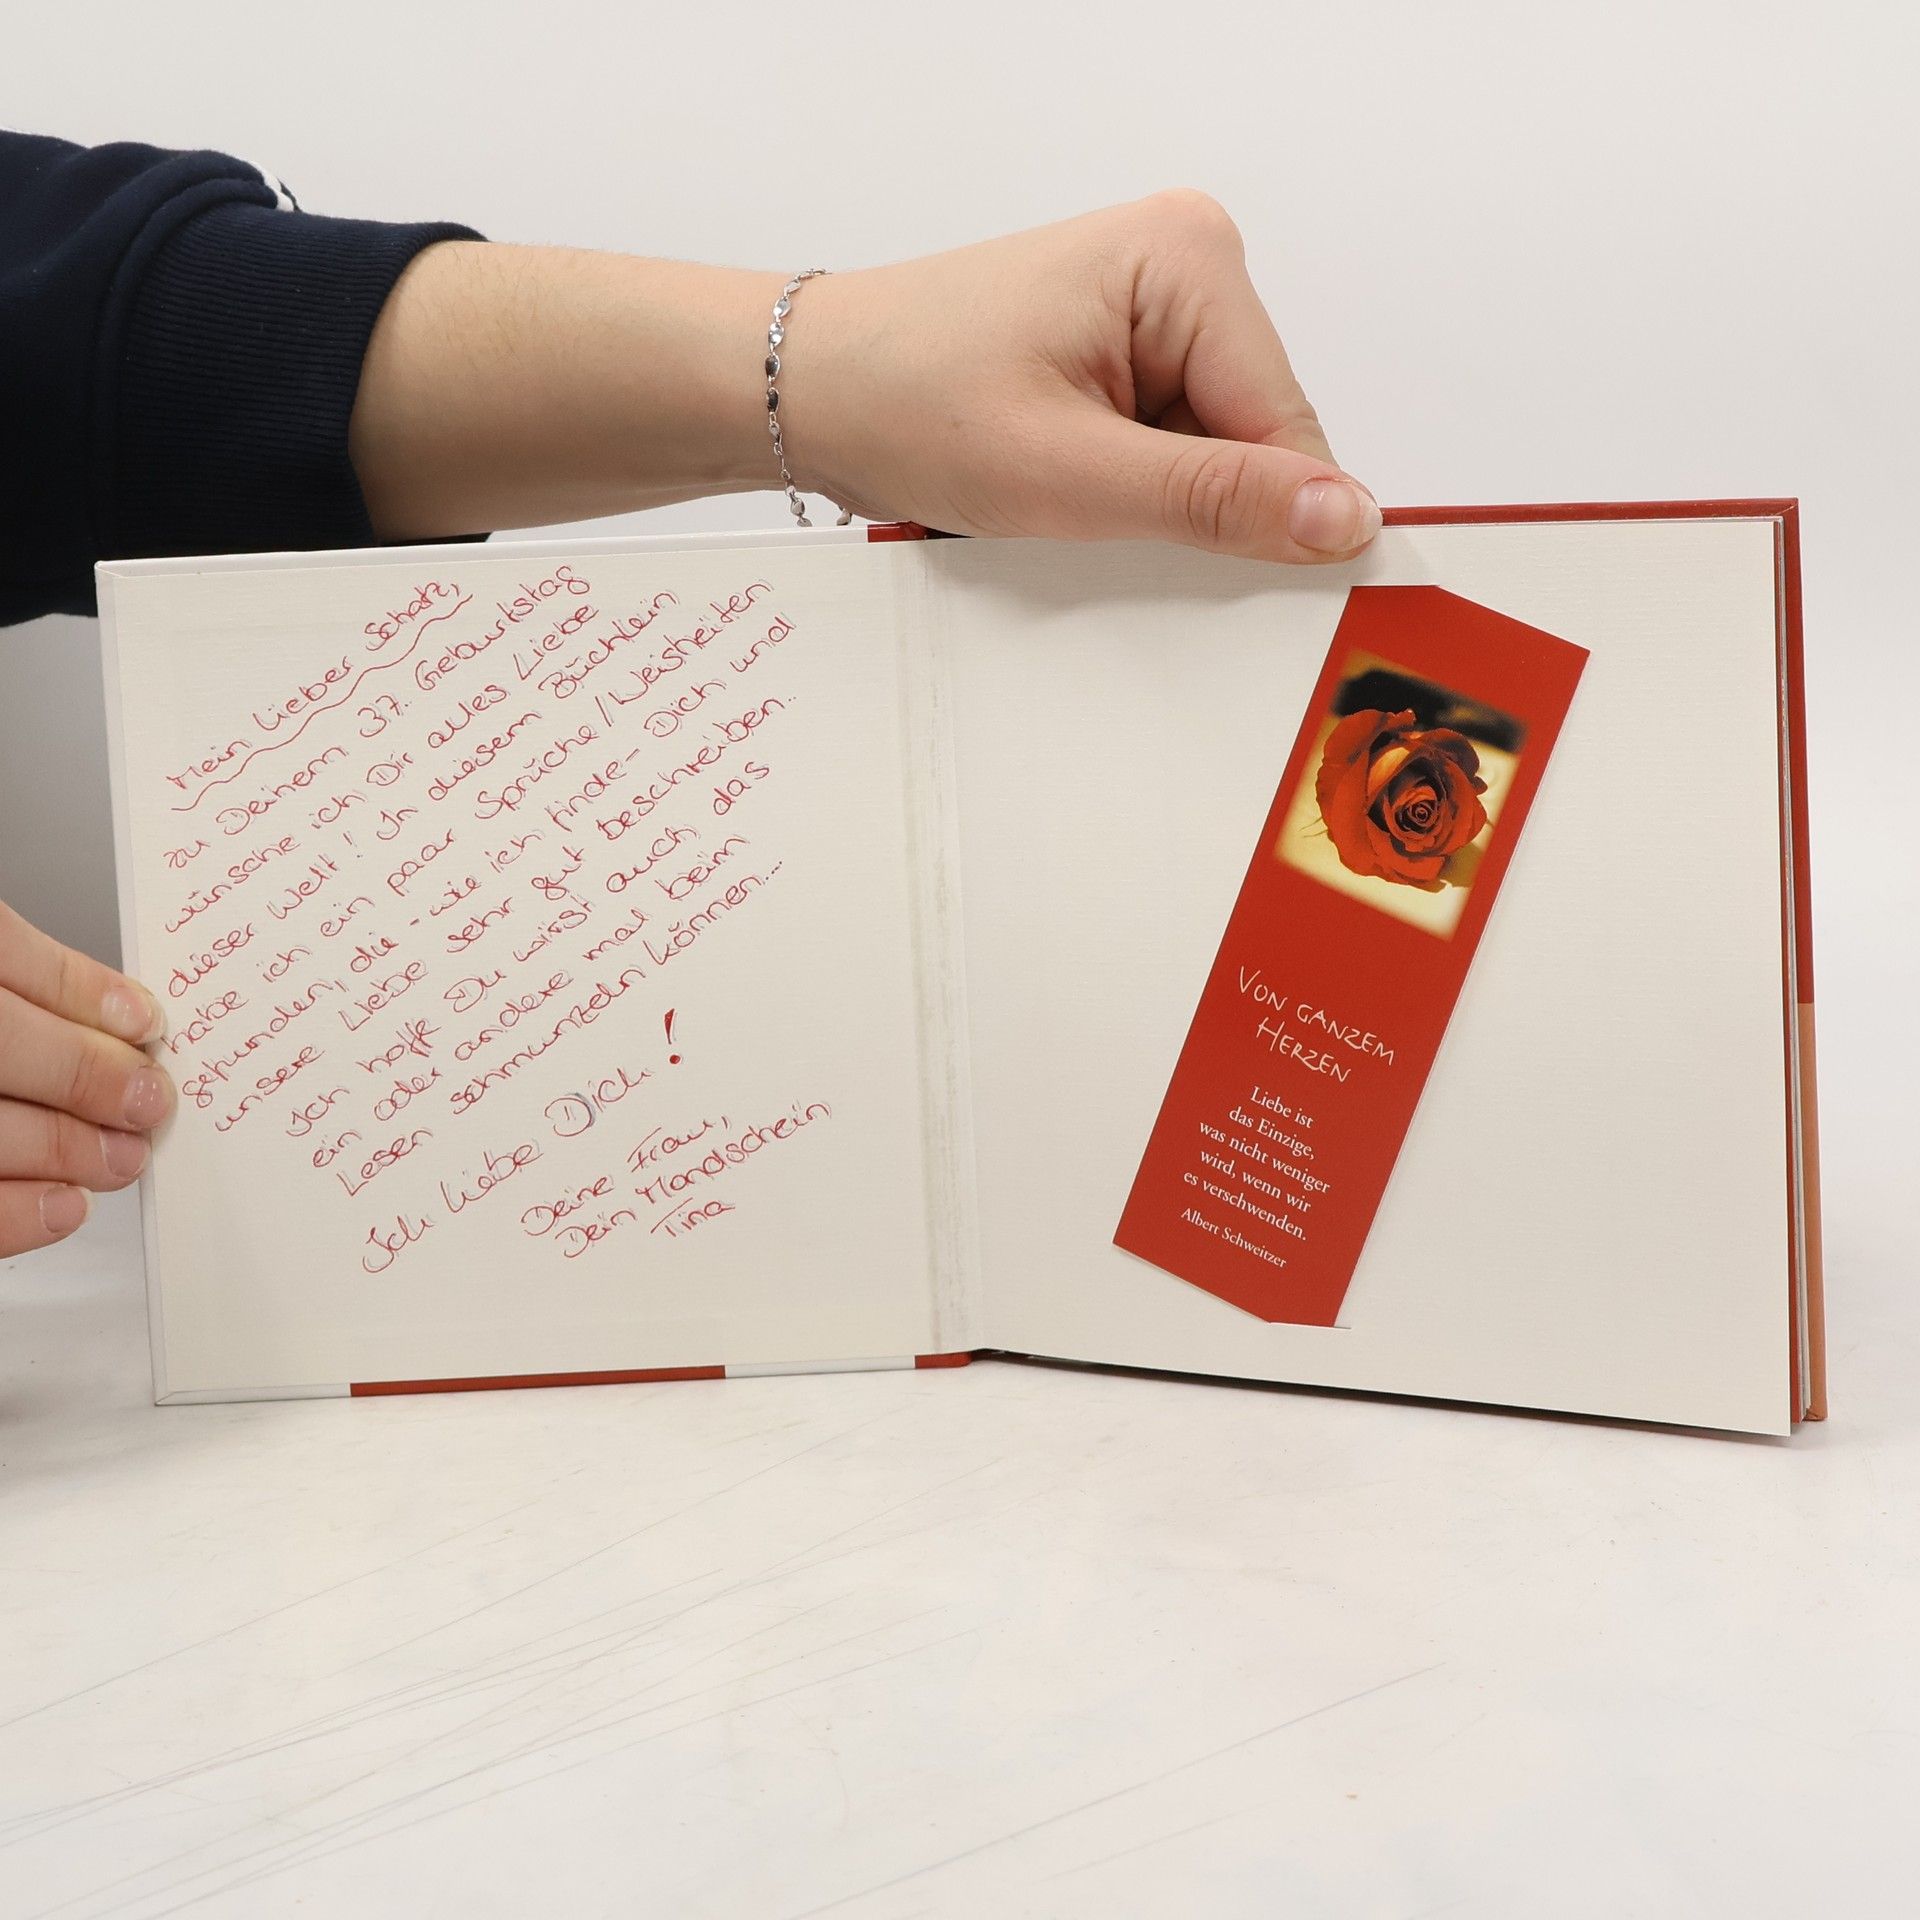 Mein lieber Schatz,
zu Deinem 37. Geburtstag
wünsche ich Dir alles Liebe
dieser Welt! In diesem Büchlein
habe ich ein paar Sprüche/Weisheiten
gefunden, die - wie ich finde - Dich und
unsere Liebe sehr gut beschreiben..
Ich hoffe Du wirst auch das
ein oder andere mal beim
Lesen schmunzeln können...
Ich liebe Dich!
Deine Frau,
Dein Mondschein
Tina
VON GANZEM
HERZEN
Liebe ist
das Einzige,
was nicht weniger
wird, wenn wir
es verschwenden.
Albert Schweitzer